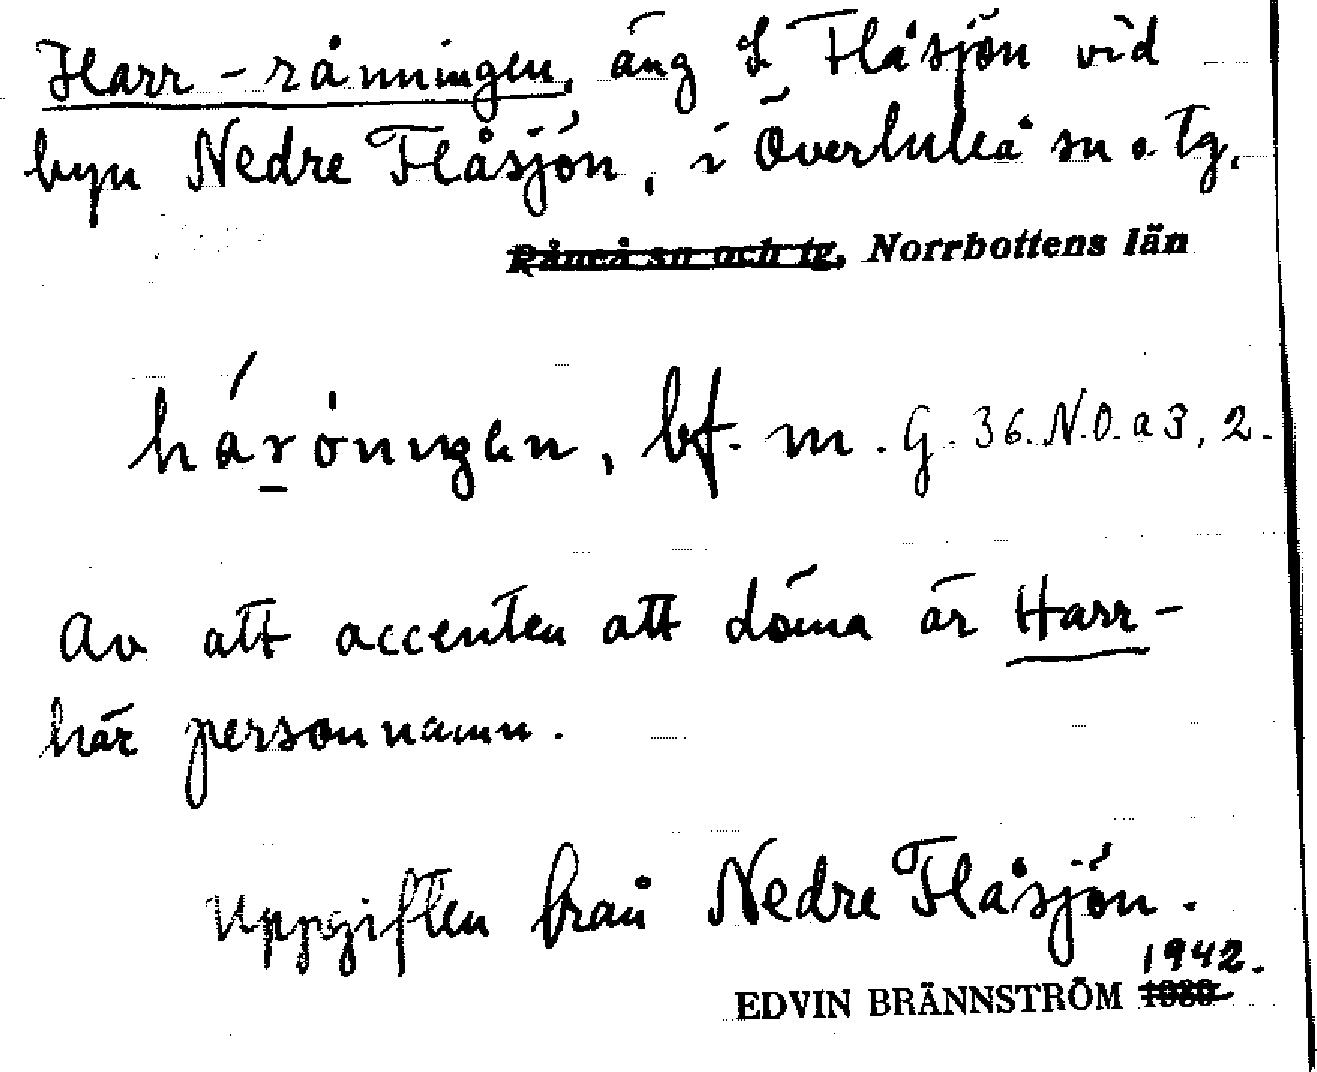 Harr-rånningen, äng i Flåsjön vid
byn Nedre Flåsjön, i Överluleå sn o. tg.
Råneå sn och tg, Norrbottens län
hárȯningen, bf. m. G. 36. N.O. a 3, 2.
Av att accenten att döma är Harr-
här personnamn.
Uppgiften från Nedre Flåsjön.
1942.
EDVIN BRÄNNSTRÖM 1939